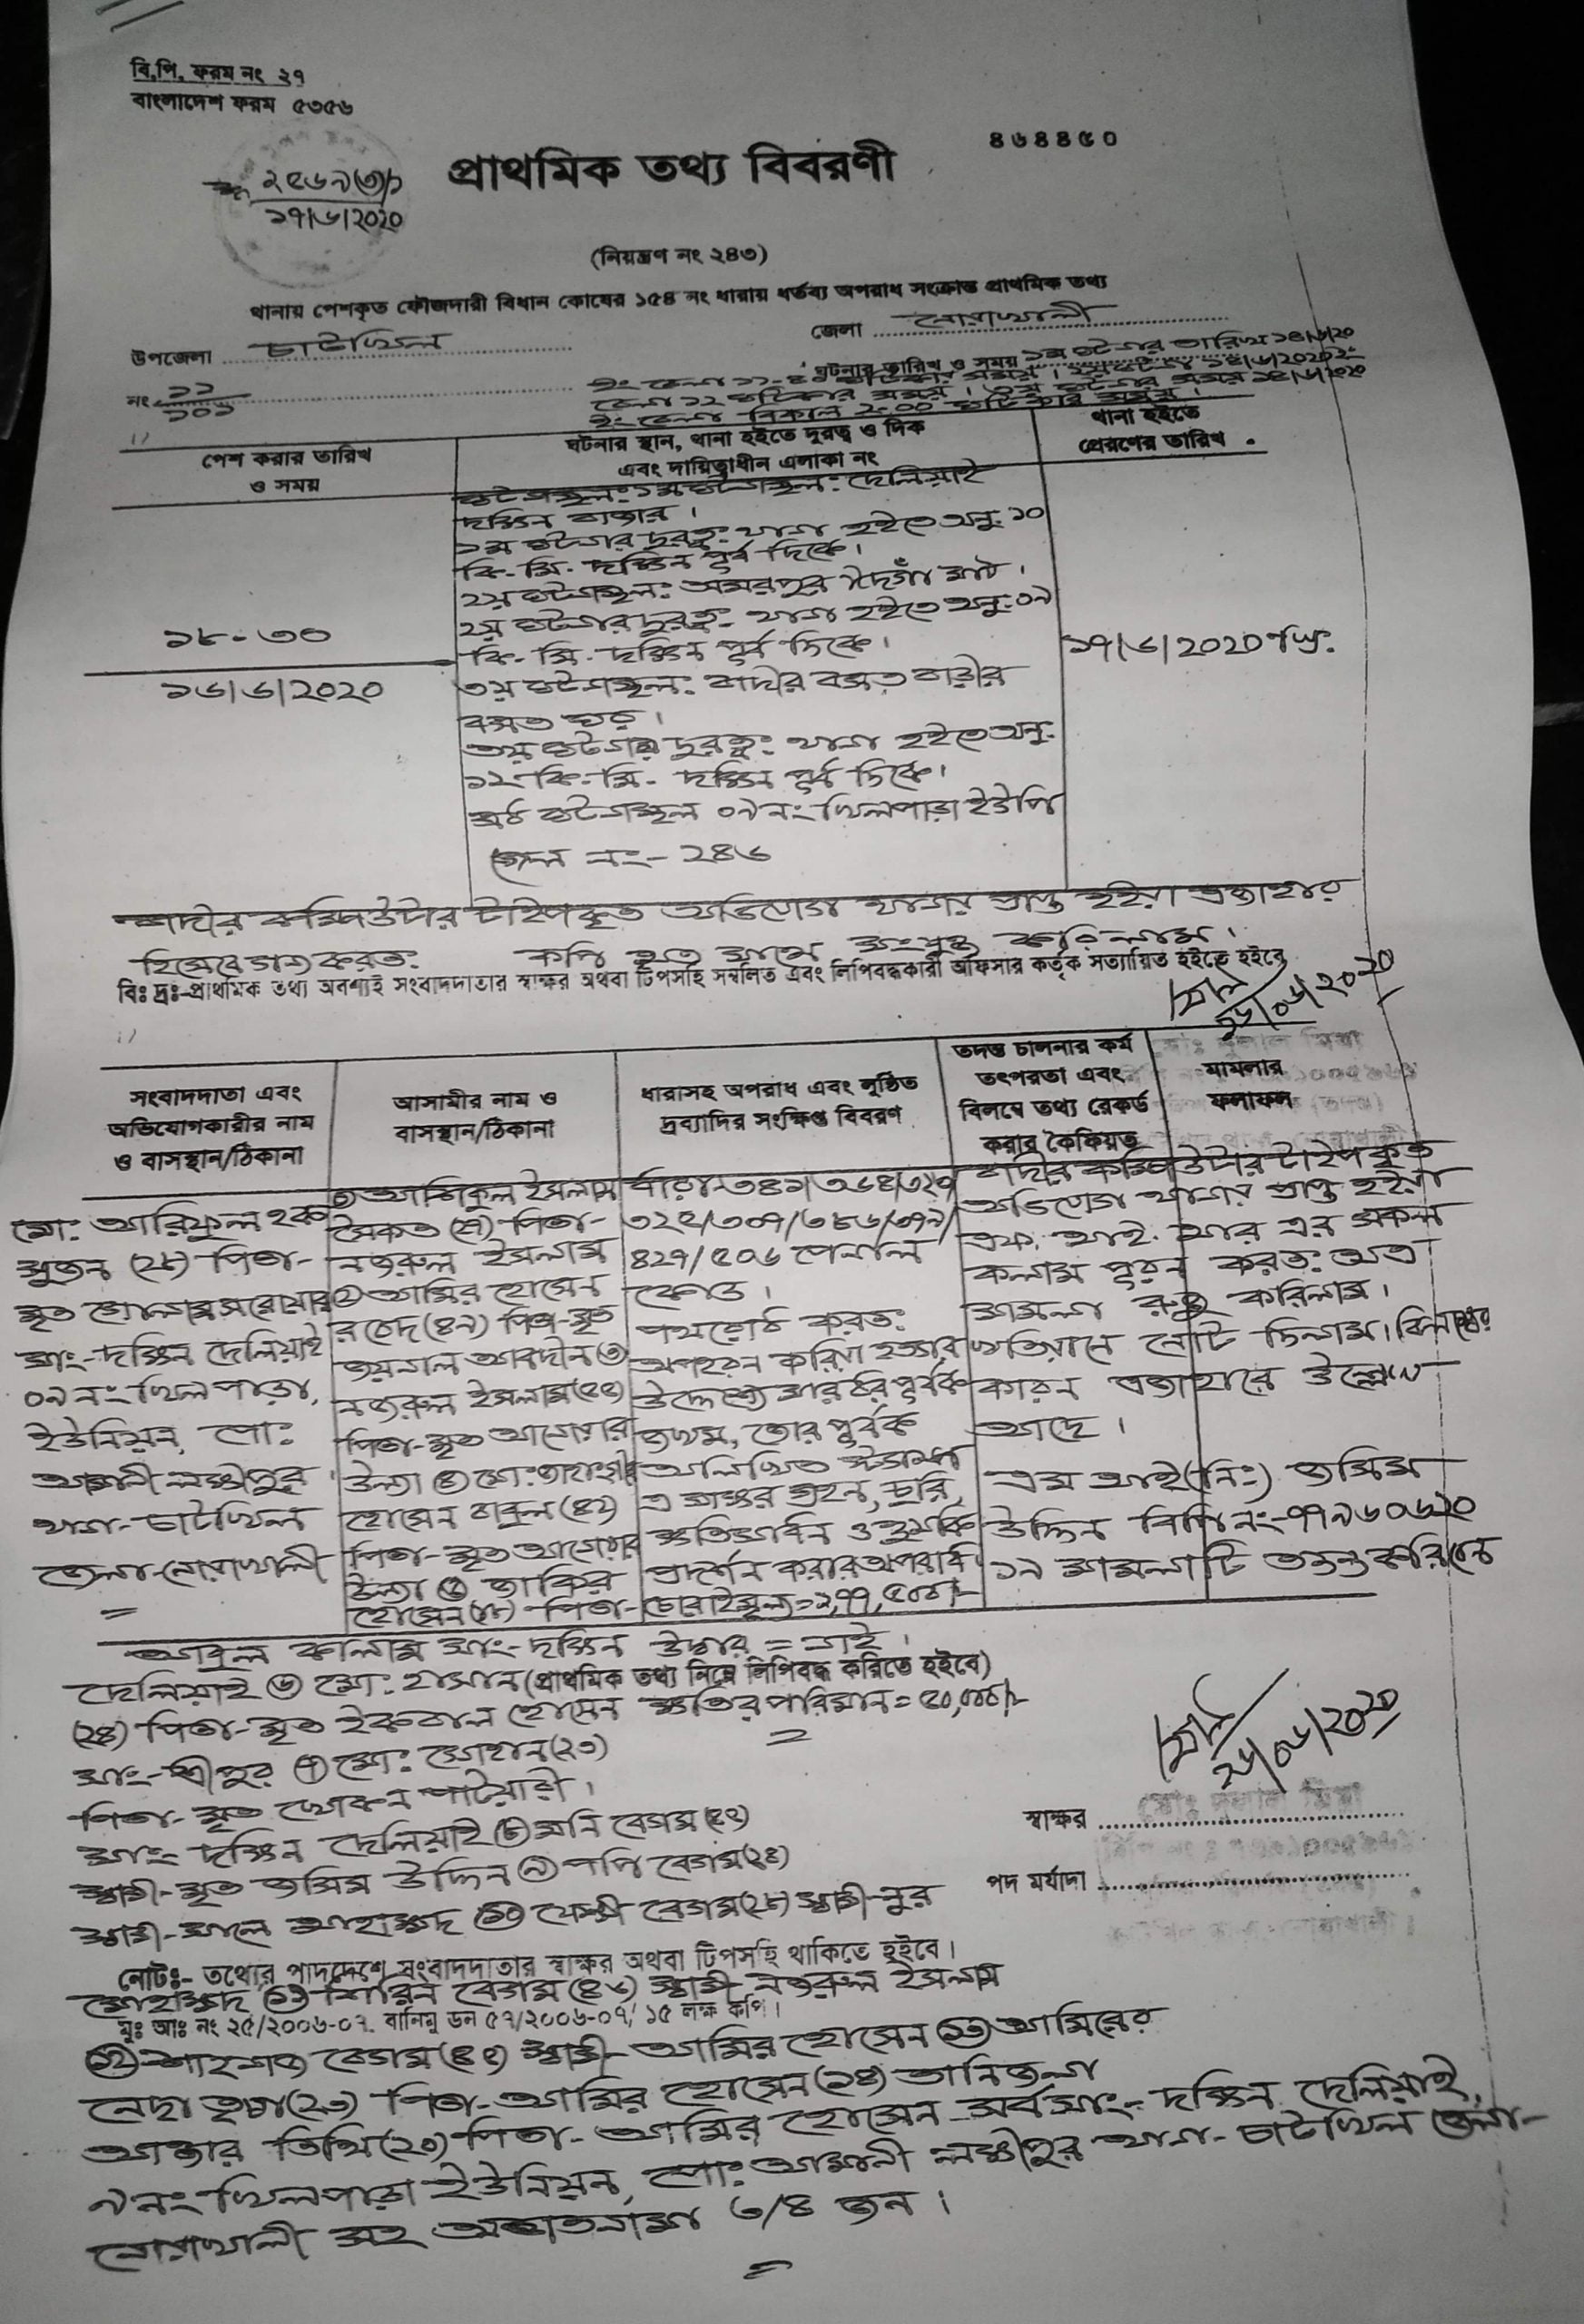 বি,পি, ফরম নং ২৭
বাংলাদেশ ফরম ৫৩৫৬
৪৬৪৪৫০
প্রাথমিক তথ্য বিবরণী
১৭/৬/2020
(নিয়ন্ত্রণ নং ২৪৩)
থানায় পেশকৃত ফৌজদারী বিধান কোষের ১৫৪ নং ধারায় ধর্তব্য অপরাধ সংক্রান্ত প্রাথমিক তথ্য
উপজেলা চাটখিল
জেলা নোয়াখালী
ঘটনার তারিখ ও সময় ১ম ঘটনার তারিখ ১৪/৬/২০
নং ১১/১০১
পেশ করার তারিখ
ও সময়
ঘটনার স্থান, থানা হইতে দুরত্ব ও দিক
এবং দায়িত্বাধীন এলাকা নং
থানা হইতে
প্রেরণের তারিখ
ঘটনাস্থল: ১ম ঘটনাস্থল: দেলিয়াই
দক্ষিন বাজার।
১ম ঘটনার দুরত্ব: থানা হইতে অনু: ১০
কি.মি. দক্ষিন পূর্ব দিকে।
২য় ঘটনাস্থল: অমরপুর ঈদগাঁ মাঠ।
২য় ঘটনার দুরত্ব: থানা হইতে অনু: ০৯
কি. মি. দক্ষিন পূর্ব দিকে।
১৮-৩০
১৬/৬/2020
১৭/৬/2020
৩য় ঘটনাস্থল: বাদীর বসত বাড়ীর
বসত ঘর।
৩য় ঘটনার দুরত্ব: থানা হইতে অনু:
১২ কি. মি. দক্ষিন পূর্ব দিকে।
ঘটনাস্থল ০৯নং খিলপাড়া ইউপি
জেল নং- ২৪৬
বাদীর কম্পিউটার টাইপকৃত অভিযোগ থানায় প্রাপ্ত হইয়া এজাহার
হিসেবে গন্য করত: কপি অত্র সাথে সংযুক্ত করিলাম।
বিঃ দ্রঃ-প্রাথমিক তথ্য অবশ্যই সংবাদদাতার স্বাক্ষর অথবা টিপসহি সম্বলিত এবং লিপিবদ্ধকারী অফিসার কর্তৃক সত্যায়িত হইতে হইবে
১৬/০৬/২০২০
সংবাদদাতা এবং
অভিযোগকারীর নাম
ও বাসস্থান/ঠিকানা
আসামীর নাম ও
বাসস্থান/ঠিকানা
ধারাসহ অপরাধ এবং লুন্ঠিত
দ্রব্যাদির সংক্ষিপ্ত বিবরণ
তদন্ত চালনার কর্ম
তৎপরতা এবং
বিলম্বে তথ্য রেকর্ড
করার কৈফিয়ত
মামলার
ফলাফল
মো: আরিফুল হক
সুজন (২৮) পিতা-
মৃত গোলাম সরোয়ার
সাং- দক্ষিন দেলিয়াই
০৯নং খিলপাড়া,
ইউনিয়ন, পো:
লক্ষীপুর
থানা- চাটখিল
জেলা- নোয়াখালী
আশিকুল ইসলাম
সৈকত পিতা-
নজরুল ইসলাম
② আমির হোসেন
(৪৯) পিতা- মৃত
জয়নাল আবদীন ③
নজরুল ইসলাম (৫৫)
পিতা- মৃত আনোয়ার
উল্যা ④ মো: জাহাংগীর
হোসেন বাবুল (৪২)
পিতা- মৃত আনোয়ার
উল্যা ⑤ জাকির
হোসেন পিতা-
ধারা-৩৪১/৩৬৪/৩২৩/
৩২৫/৩০৭/৩৮৬/৩৭৯/
৪২৭/৫০৬ পেনাল
কোড।
পথরোধ করত:
অপহরন করিয়া হত্যার
উদ্দেশ্যে মারধর পূর্বক
জখম, জোর পূর্বক
অলিখিত
স্বাক্ষর গ্রহন, চুরি,
ক্ষতিসাধন ও হুমকি
প্রদর্শন করার অপরাধ
চোরাইমূল্য=২,৭৭,৫০০/-
বাদীর কম্পিউটার টাইপকৃত
অভিযোগ থানায় প্রাপ্ত হইয়া
এফ. আই. আর এর সকল
কলাম পূরন করত: অত্র
মামলা রুজু করিলাম।
খতিয়ানে নোট দিলাম। বিলম্বের
কারন এজাহারে উল্লেখ
আছে।
এস আই(নি:) জসিম
উদ্দিন বিপি নং-৭৭৯৬০৬২০
১৯ মামলাটি তদন্ত করিবেন
আবুল কালাম সাং- দক্ষিন
উদ্ধার = নাই।
দেলিয়াই ⑥ মো: হাসান
(প্রাথমিক তথ্য নিম্নে লিপিবদ্ধ করিতে হইবে)
(২৪) পিতা- মৃত ইকবাল হোসেন
ক্ষতির পরিমান=৫০,০০০/-
সাং- শ্রীপুর ⑦ মো: সোহান (২৩)
পিতা- মৃত খোকন পাটোয়ারী।
সাং- দক্ষিন দেলিয়াই ⑧ মনি বেগম (৫৫)
স্বামী- মৃত জসিম উদ্দিন ⑨ পপি বেগম (২৪)
স্বামী- সালে আহাম্মদ ⑩ বেগম (২৮) স্বামী- নুর
১৬/০৬/২০২০
স্বাক্ষর
পদ মর্যাদা
নোটঃ- তথ্যের পাদদেশে সংবাদদাতার স্বাক্ষর অথবা টিপসহি থাকিতে হইবে।
মোহাম্মদ ⑪ শিরিন বেগম (৪৬) স্বামী- নজরুল ইসলাম
মুঃ আঃ নং ২৫/২০০৬-০৭. ৫৭/২০০৬-০৭, ১৫ লক্ষ কপি।
⑫ শাহনাজ বেগম (৪৫) স্বামী- আমির হোসেন ⑬
(২৩) পিতা- আমির হোসেন (১৪) তানজিনা
আক্তার তিথি (২০) পিতা- আমির হোসেন- সর্বসাং- দক্ষিন দেলিয়াই,
৯নং খিলপাড়া ইউনিয়ন, পো: লক্ষীপুর থানা- চাটখিল জেলা-
নোয়াখালী সহ অজ্ঞাতনামা ৩/৪ জন।